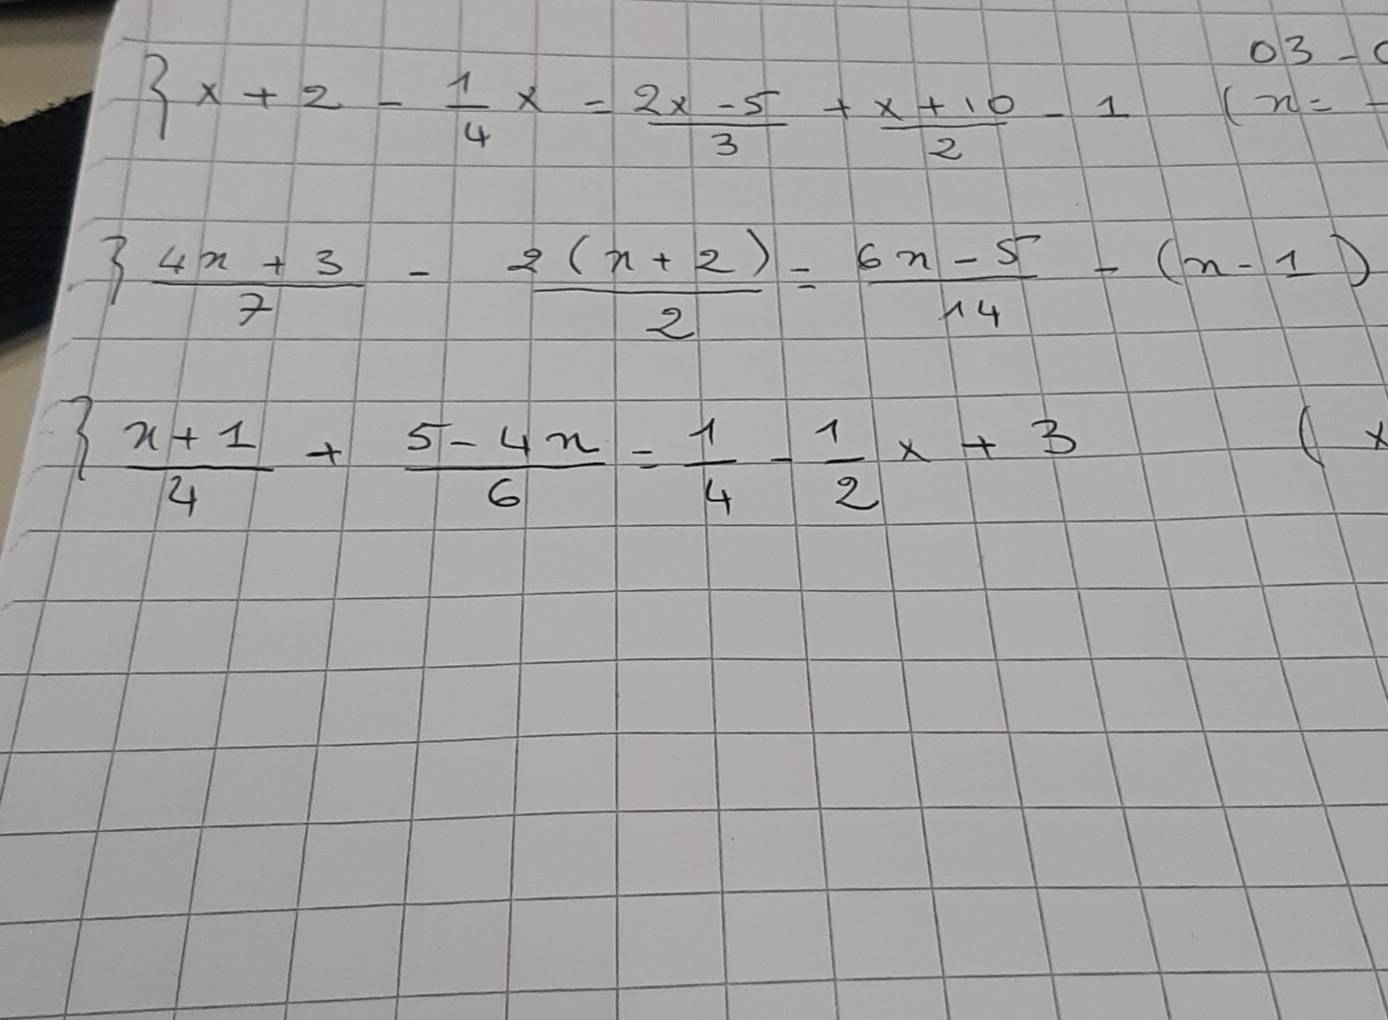 03 -
} x + 2 - 1/4 x = 2x - 5/3 + x + 10/2 - 1 (x = -
} 4x + 3/7 - 2(x + 2)/2 = 6x - 5/14 - (x - 1)
} x + 1/4 + 5 - 4x/6 = 1/4 - 1/2 x + 3 ( x